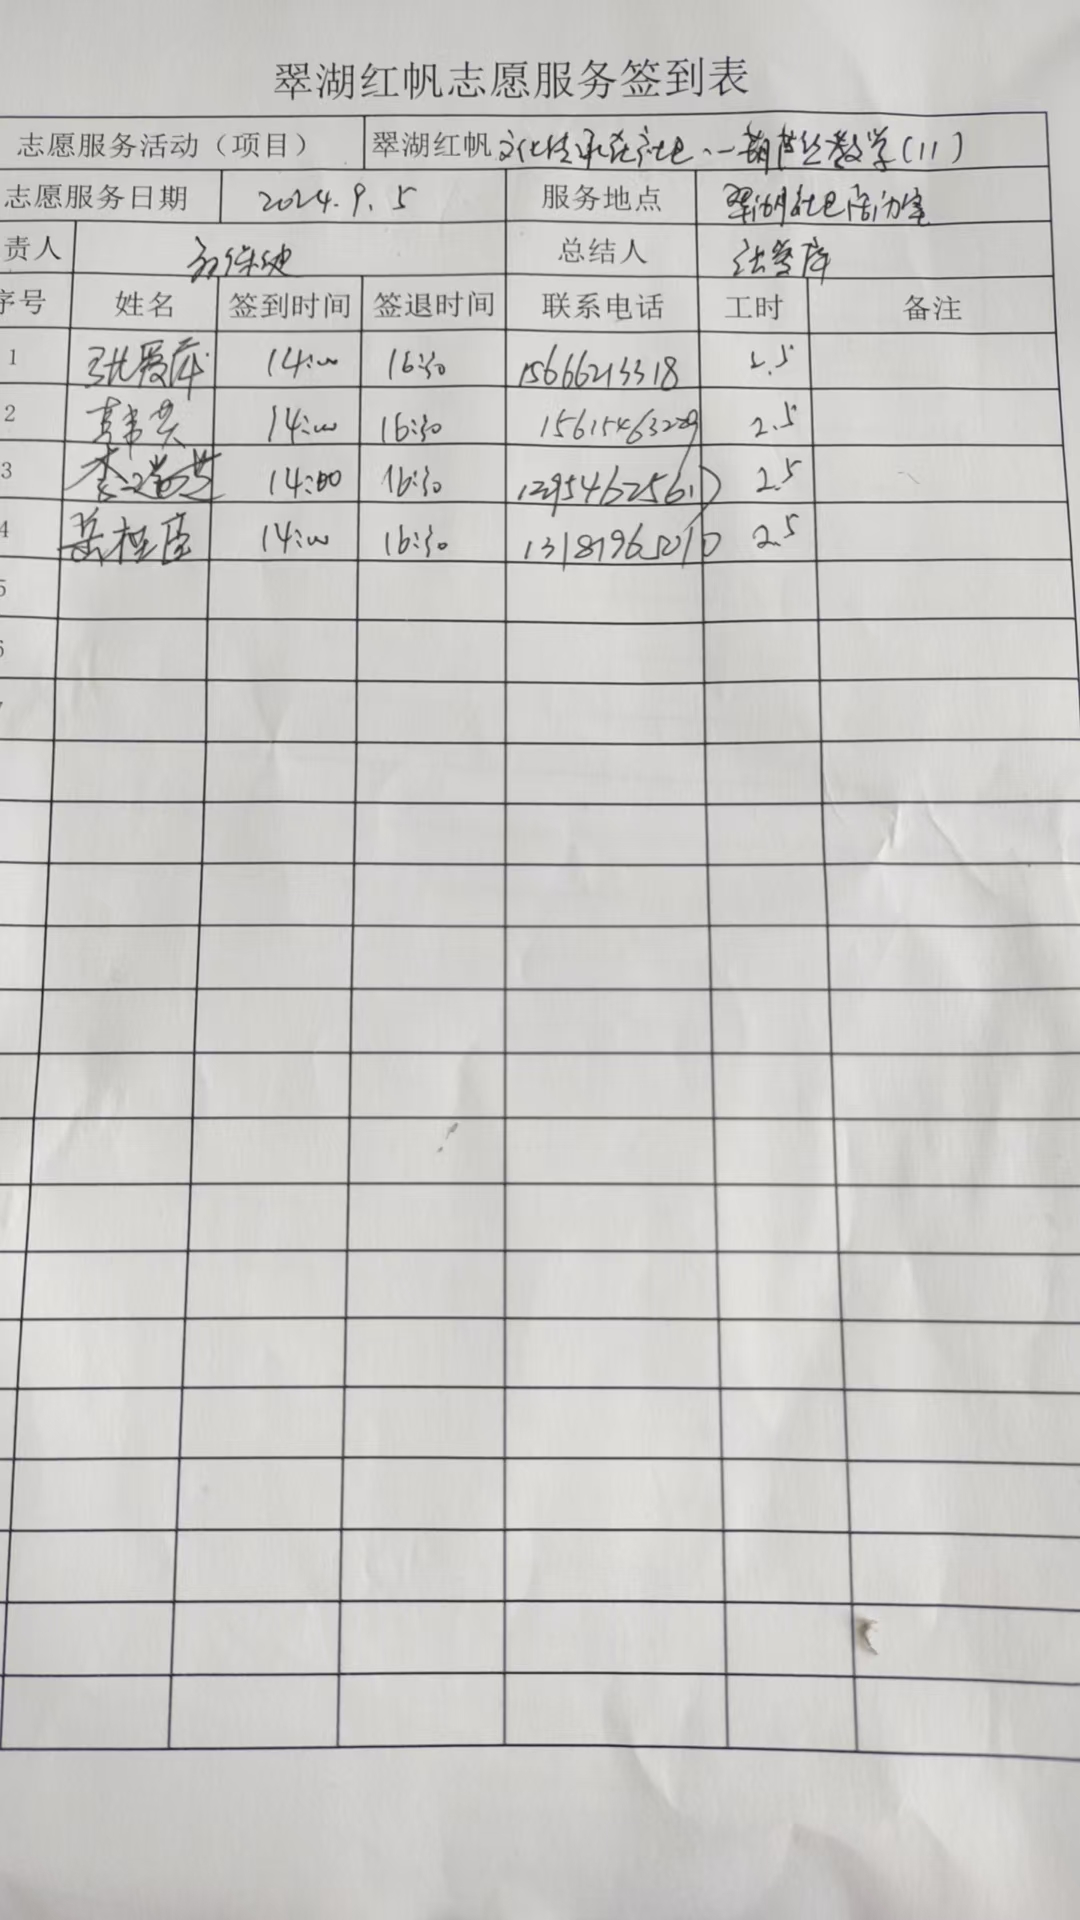 翠湖红帆志愿服务签到表
志愿服务活动（项目） 翠湖红帆 文化传承在社区·一葫芦丝教学(11)
志愿服务日期 2024.9.5 服务地点 翠湖社区活动室
责人 总结人
序号 姓名 签到时间 签退时间 联系电话 工时 备注
1 张爱萍 14:00 16:30 15666213318 2.5
2 14:00 16:30 15615463229 2.5
3 李瑞芝 14:00 16:30 2.5
4 14:00 16:30 2.5
5
6